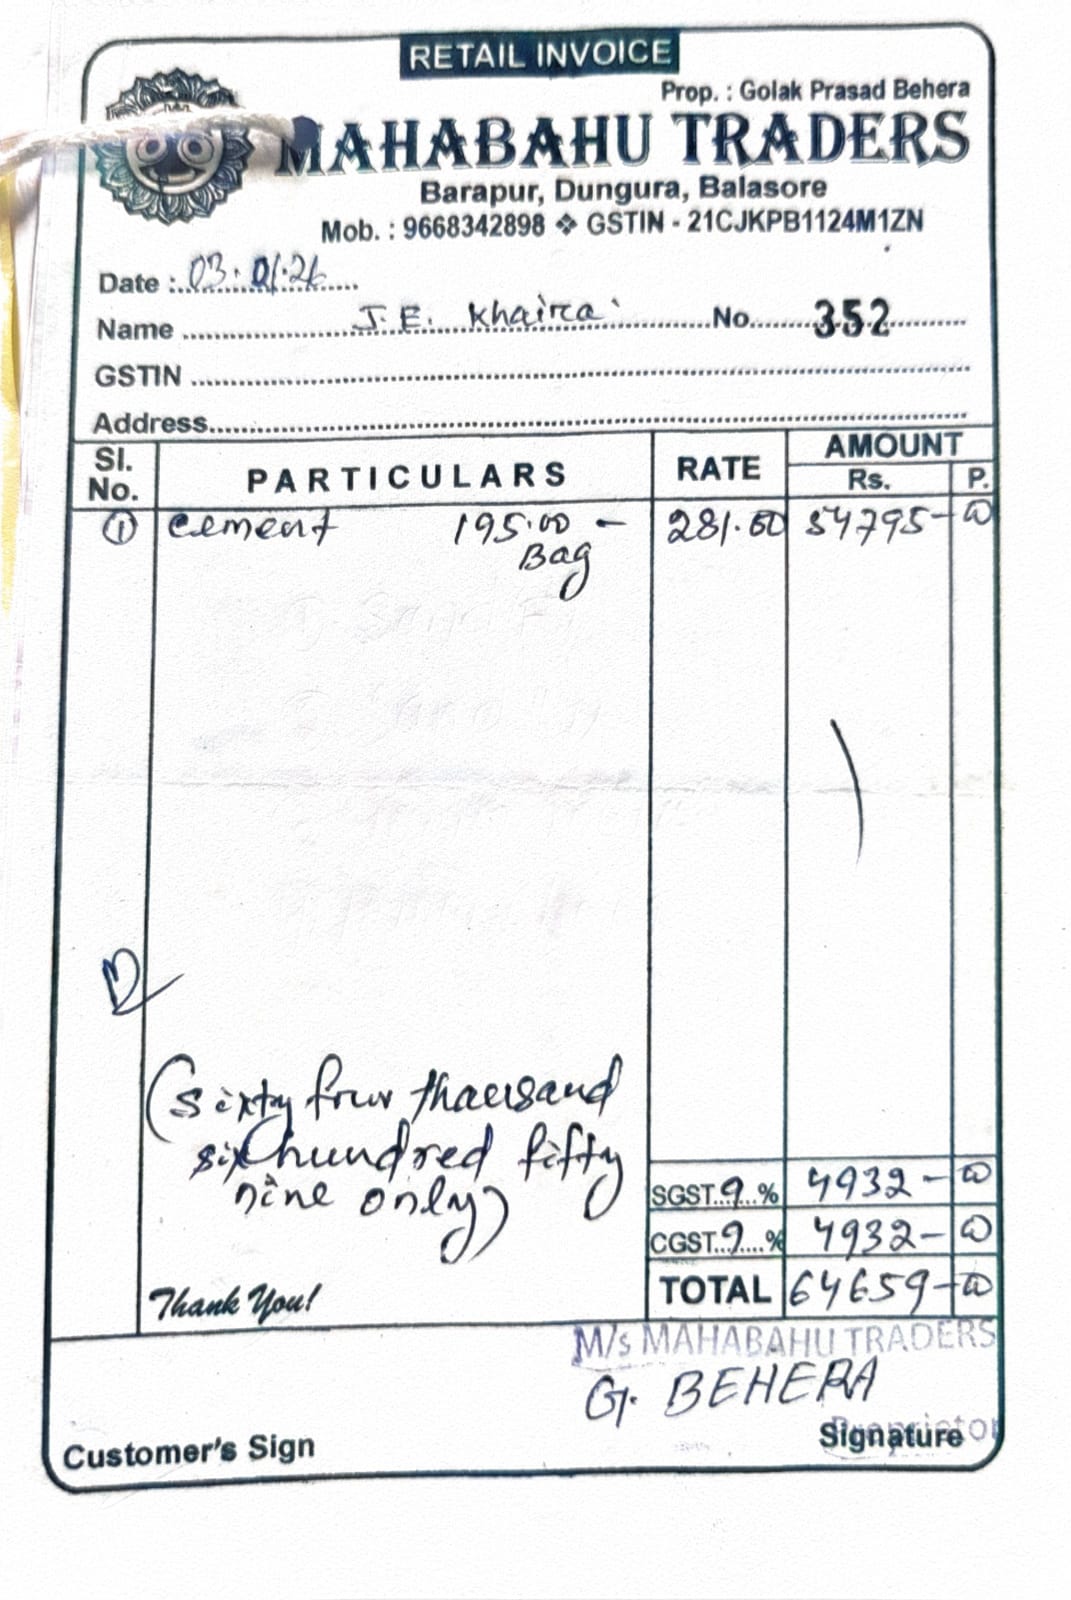 RETAIL INVOICE
Prop. : Golak Prasad Behera
MAHABAHU TRADERS
Barapur, Dungura, Balasore
Mob. : 9668342898 ❖ GSTIN - 21CJKPB1124M1ZN
Date : 03.01.26
Name J.E. Khaira No. 352
GSTIN
Address
Sl. No. PARTICULARS RATE AMOUNT
Rs. P.
① cement 195.00 - 281.00 54795-00
Bag
(sixty four thaousand
six hundred fifty
nine only)
SGST 9 % 4932-00
CGST 9 % 4932-00
TOTAL 64659-00
Thank You!
M/s MAHABAHU TRADERS
G. BEHERA
Proprietor
Customer's Sign Signature